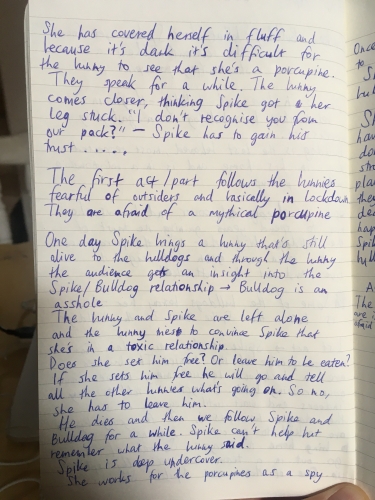 She has covered herself in fluff and
because it's dark it's difficult for
the bunny to see that she's a porcupine.
They speak for a while. The bunny
comes closer, thinking Spike got her
leg stuck. "I don't recognise you from
our pack?" – Spike has to gain his
trust .....
The first act/part follows the bunnies
fearful of outsiders and basically in lockdown
They are afraid of a mythical porcupine
One day Spike brings a bunny that's still
alive to the bulldogs and through the bunny
the audience gets an insight into the
Spike/Bulldog relationship → Bulldog is an
asshole
The bunny and Spike are left alone
and the bunny tries to convince Spike that
she's in a toxic relationship.
Does she set him free? Or leave him to be eaten?
If she sets him free he will go and tell
all the other bunnies what's going on. So no,
she has to leave him.
He dies and then we follow Spike and
Bulldog for a while. Spike can't help but
remember what the bunny said.
Spike is deep undercover.
She works for the porcupines as a spy